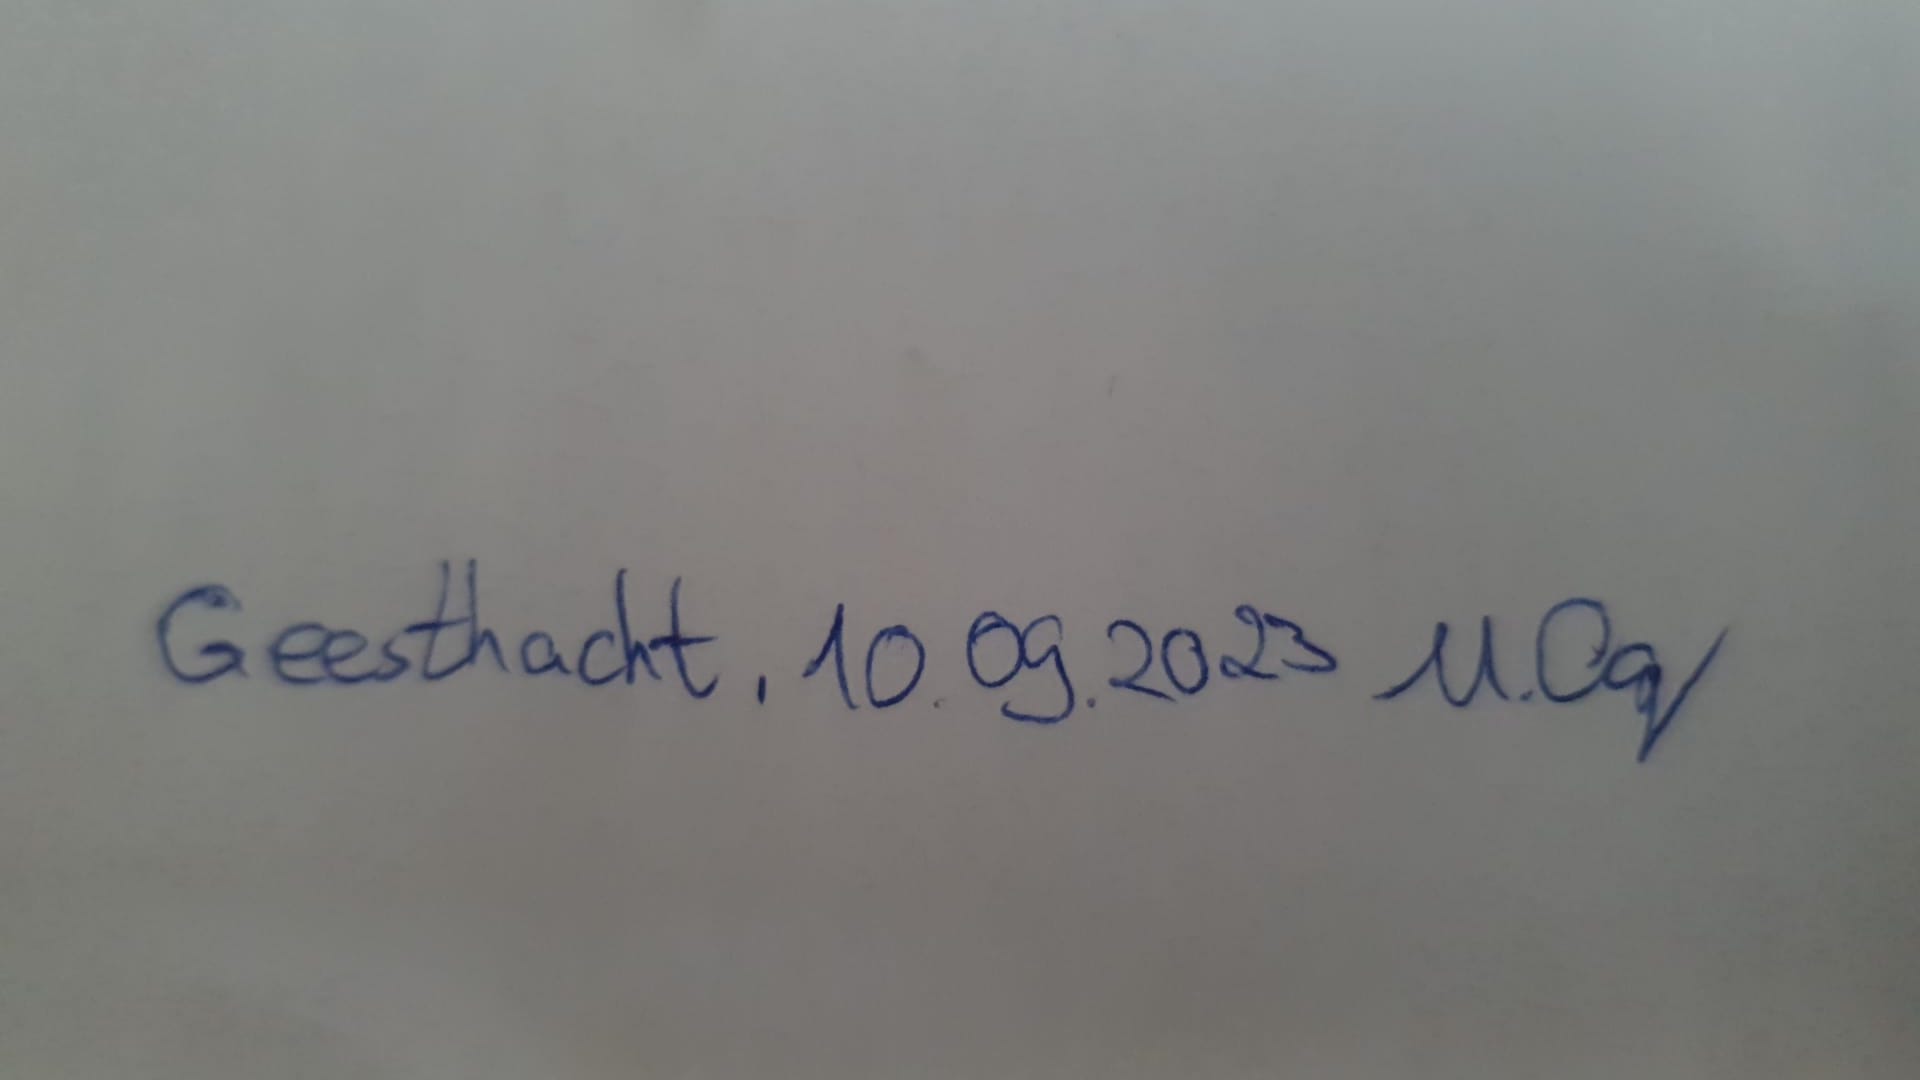 Geesthacht, 10.09.2023 M.